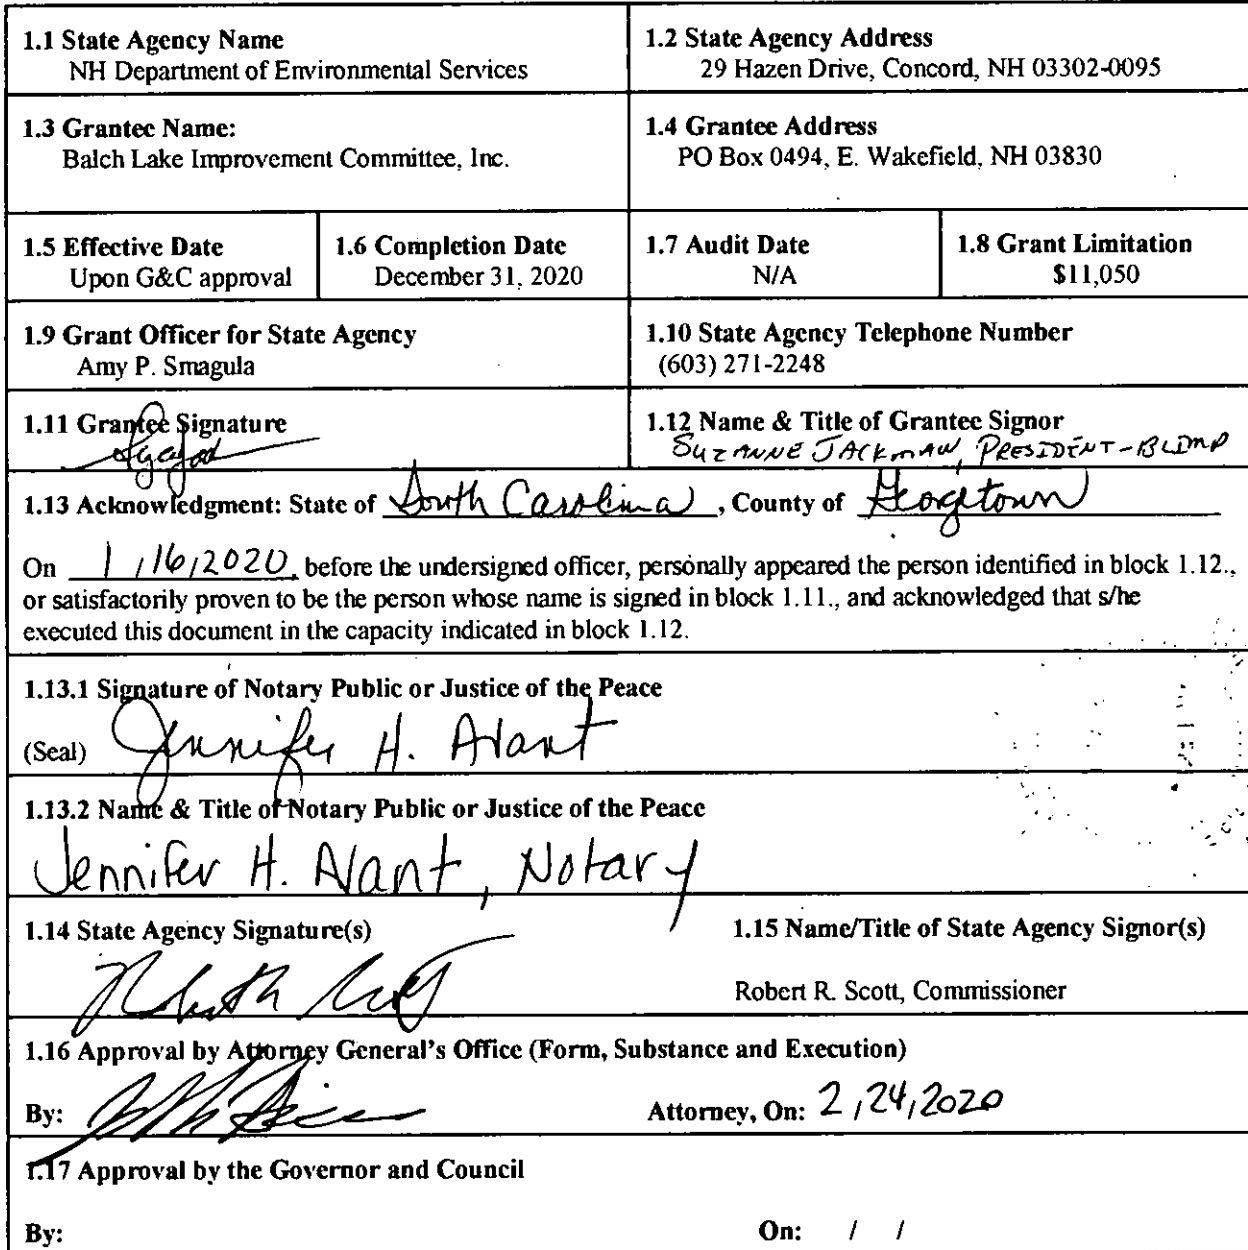 1.1 State Agency Name
NH Department of Environmental Services
1.2 State Agency Address
29 Hazen Drive, Concord, NH 03302-0095
1.3 Grantee Name:
Balch Lake Improvement Committee, Inc.
1.4 Grantee Address
PO Box 0494, E. Wakefield, NH 03830
1.5 Effective Date
Upon G&C approval
1.6 Completion Date
December 31, 2020
1.7 Audit Date
N/A
1.8 Grant Limitation
$11,050
1.9 Grant Officer for State Agency
Amy P. Smagula
1.10 State Agency Telephone Number
(603) 271-2248
1.11 Grantee Signature
1.12 Name & Title of Grantee Signor
SUZANNE JACKMAN, PRESIDENT-
1.13 Acknowledgment: State of South Carolina, County of Georgetown
On 1/16/2020, before the undersigned officer, personally appeared the person identified in block 1.12.,
or satisfactorily proven to be the person whose name is signed in block 1.11., and acknowledged that s/he
executed this document in the capacity indicated in block 1.12.
1.13.1 Signature of Notary Public or Justice of the Peace
(Seal) Jennifer H.
1.13.2 Name & Title of Notary Public or Justice of the Peace
Jennifer H. , Notary
1.14 State Agency Signature(s)
1.15 Name/Title of State Agency Signor(s)
Robert R. Scott, Commissioner
1.16 Approval by Attorney General's Office (Form, Substance and Execution)
By: Attorney, On: 2/24/2020
1.17 Approval by the Governor and Council
By: On: / /